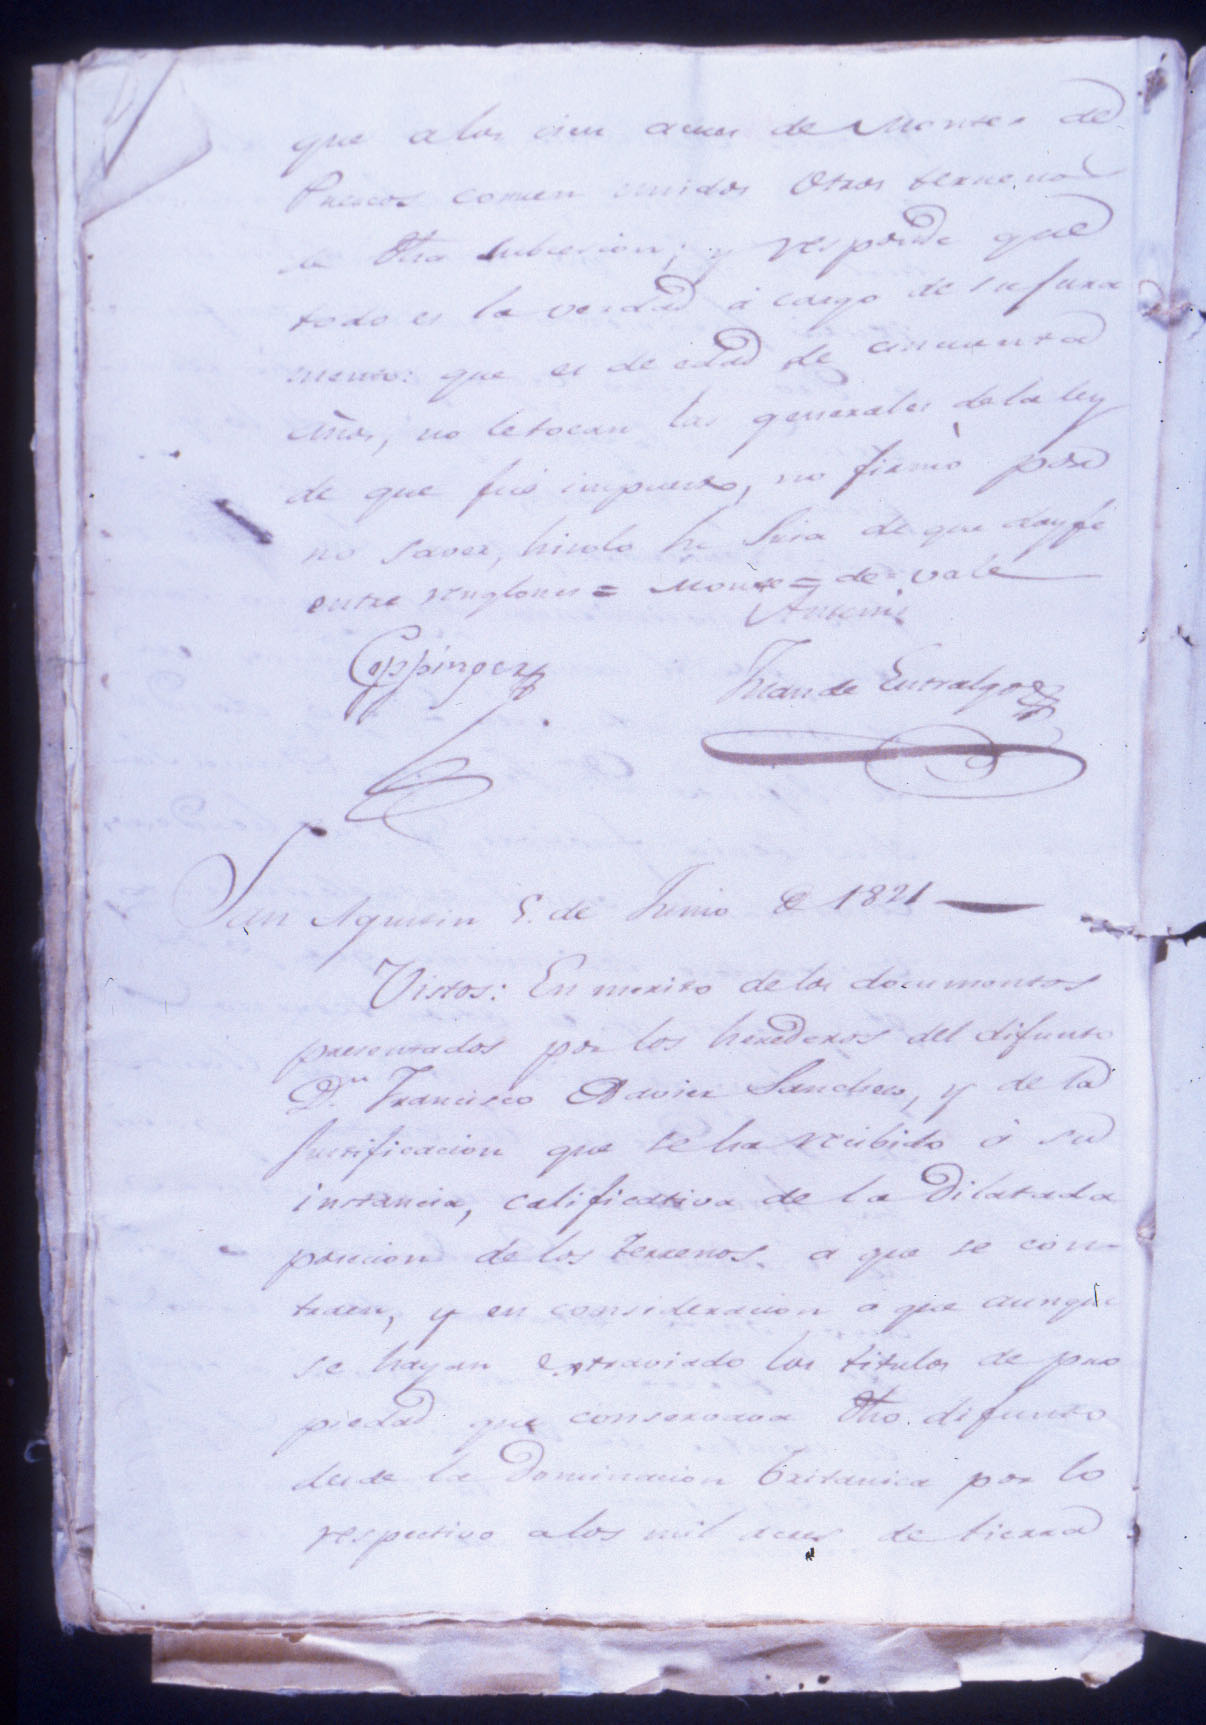 que a los cien acres de Montes de
Puercos corren unidos otros terrenos
de dha subcesion; y responde que
todo es la verdad á cargo de su jura
mento: que es de edad de cincuenta
años, no le tocan las generales de la ley
de que fué impuesto, no firmó por
no saver, hizolo Su Sria de que doy fé
entre renglones = Monte = de = vale
Antemi
Coppinger
Juan de Entralgo
San Agustin 5. de Junio de 1821
Vistos: En merito de los documentos
presentados por los herederos del difunto
Dn. Francisco Xavier Sanchez, y de la
justificacion que se ha recibido á su
instancia, calificativa de la dilatada
posecion de los terrenos a que se con-
traen, y en consideracion a que aunque
se hayan extraviado los titulos de pro
piedad que conservava dho. difunto
desde la Dominacion britanica por lo
respectivo a los mil acres de tierra